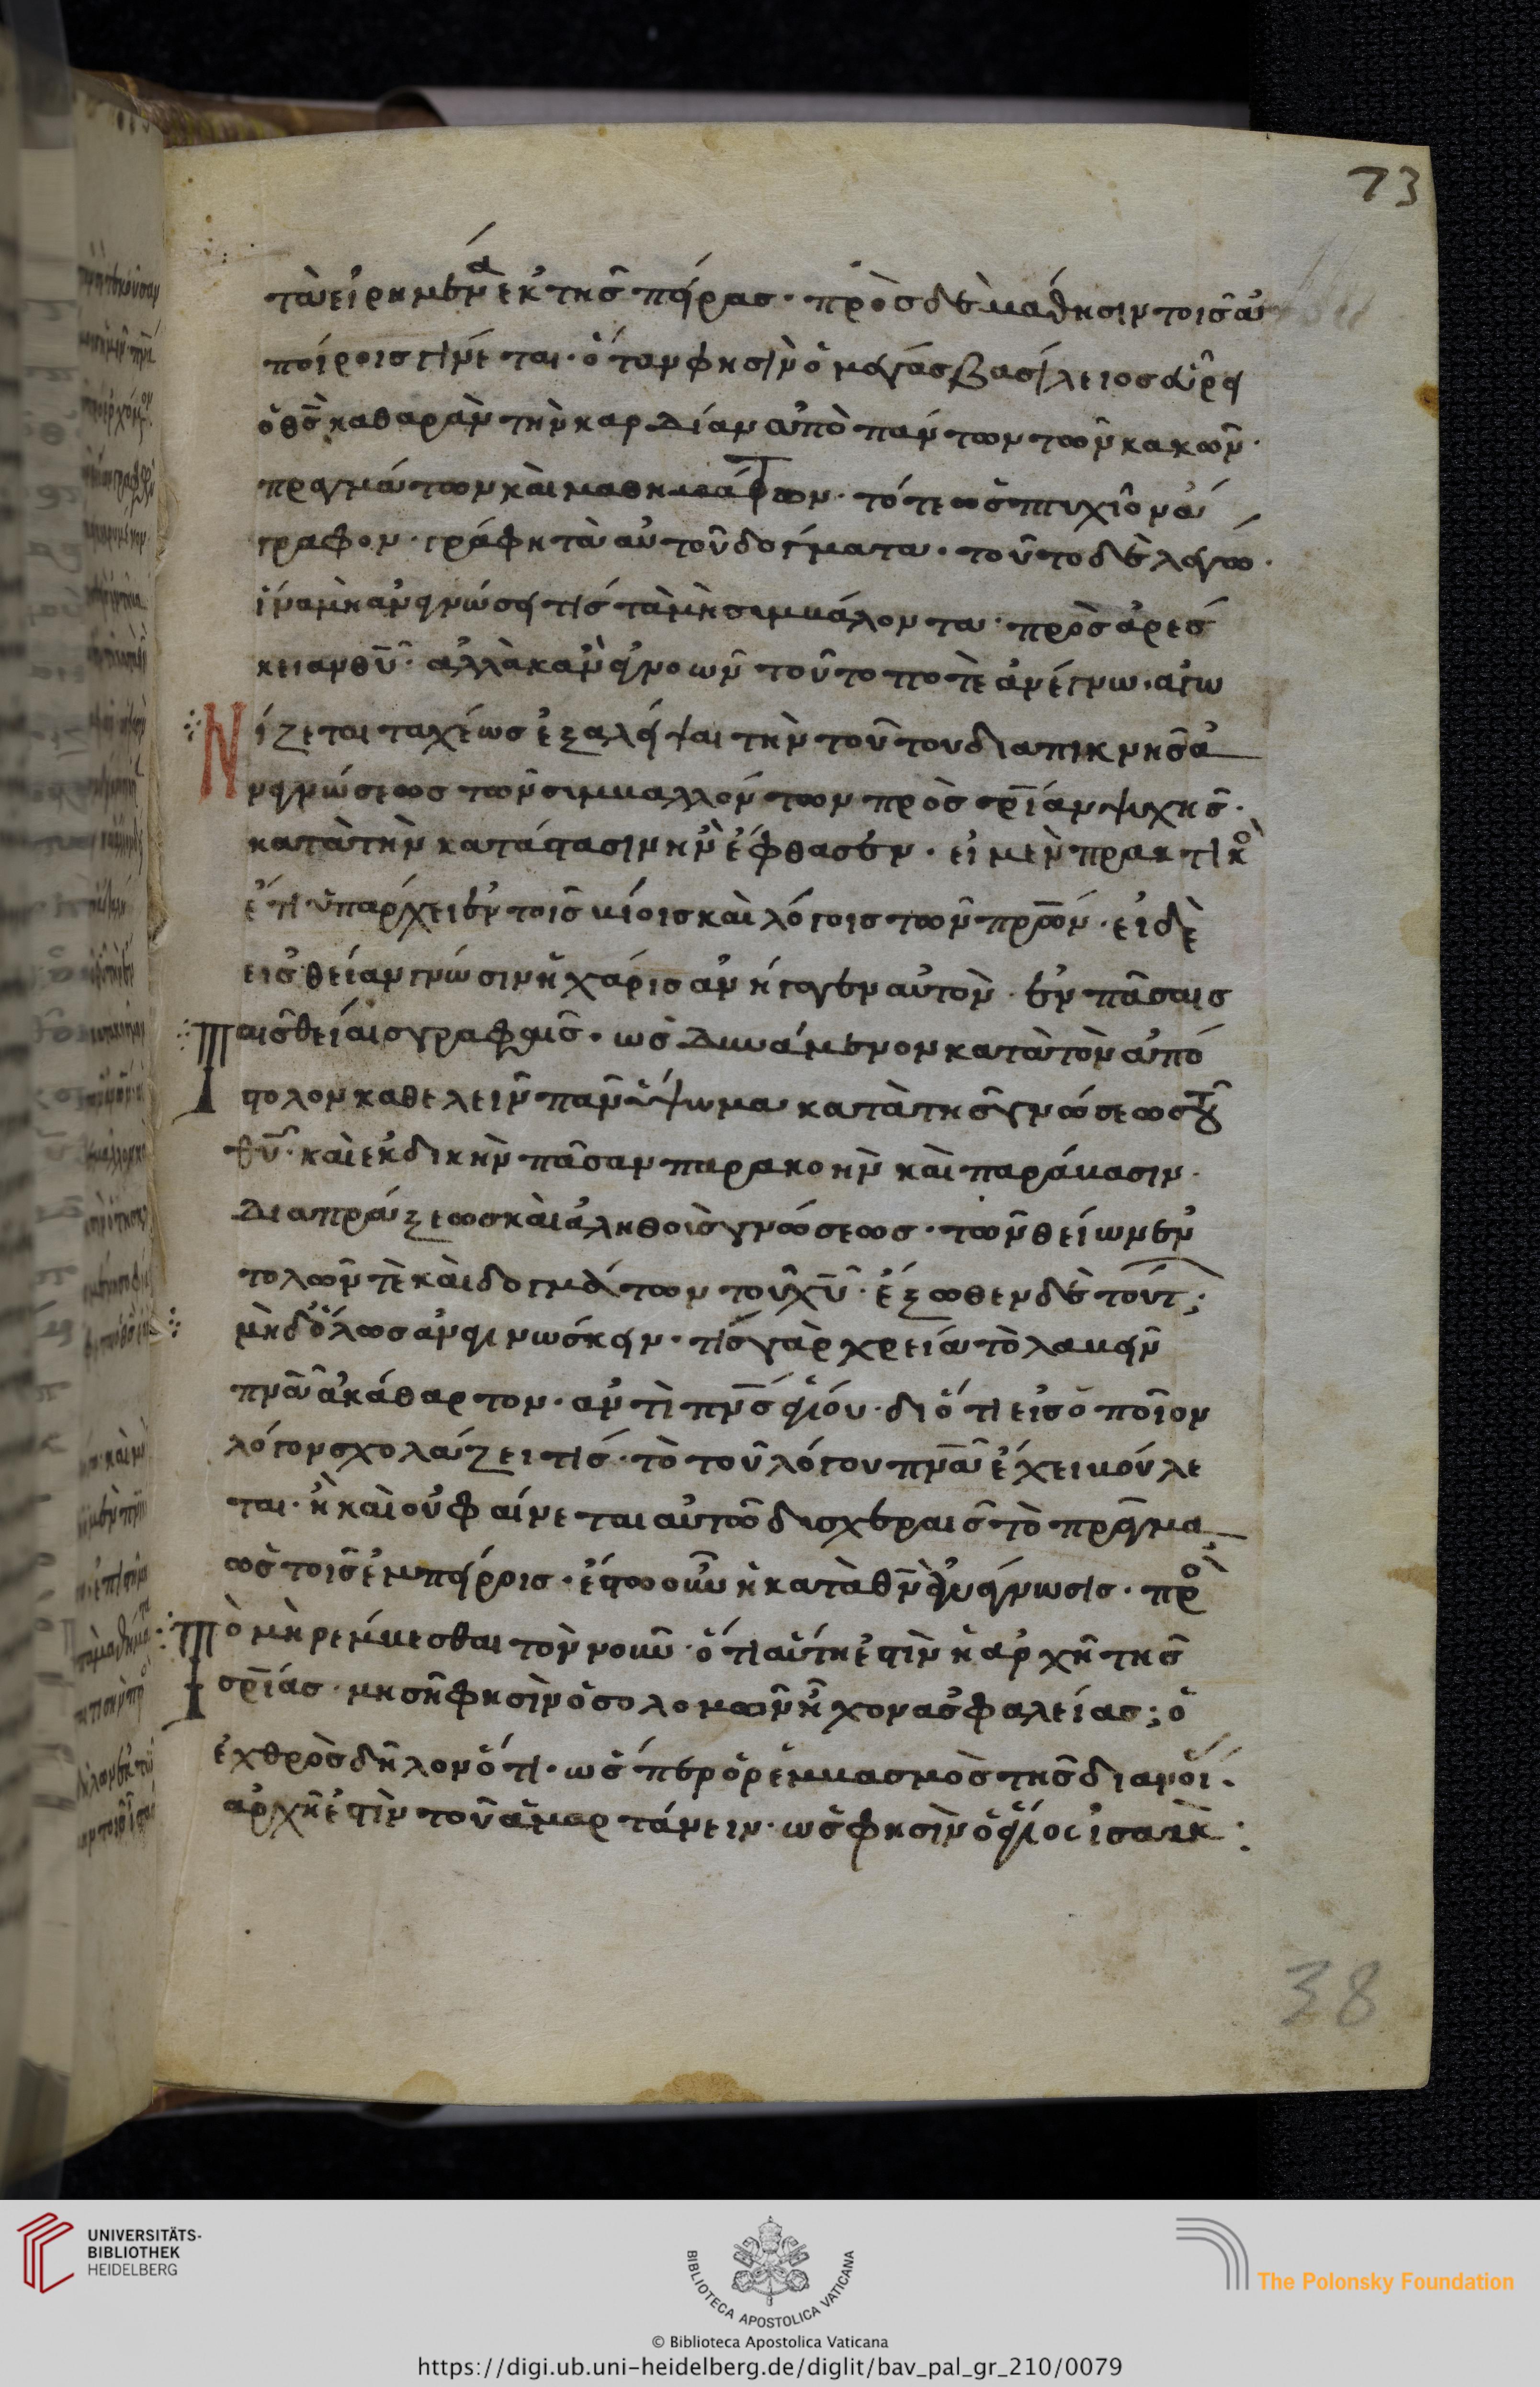 73
τὰ εἰρημένα ἐκ τῆς πείρας · πρὸς δὲ μάθησιν τοῖς ἀ
πείροις γίνεται · ὅταν φησὶν ὁ μέγας βασίλειος εὕρῃ
ὁ θς̅ καθαρὰν τὴν καρδίαν ἀπὸ πάντων τῶν κακῶν ·
πραγμάτων καὶ μαθημάτων · τότε ὡς πτυχίον ἄ
γραφον · γράφη τὰ αὐτοῦ δόγματα · τοῦτο δὲ λέγω ·
ἵνα μὴ ἀναγνώσῃ τίς τὰ μὴ συμβάλοντα πρὸς ἀρέσ
κειαν θυ̅ · ἀλλὰ κἂν ἀγνοῶν τοῦτο ποτὲ ἀνέγνω · ἀγω
νίζεται ταχέως ἐξαλεῖψαι τὴν τούτου διὰ πνικῆς ἀ
ναγνώσεως τῶν συμβαλλόντων πρὸς σρ̅ίαν ψυχῆς ·
κατὰ τὴν κατάστασιν ἣν ἔφθασεν · εἰ μὲν πρακτικὸ
ἔτι ὑπάρχει ἐν τοῖς βίοις καὶ λόγοις τῶν πρω̅ν · εἰ δὲ
εἰς θείαν γνώσιν ἡ χάρις ἀνήγαγεν αὐτὸν · ἐν πάσαις
ταῖς θείαις γραφαῖς · ὡς δυνάμενον κατὰ τὸν ἀπό
στολον καθελεῖν πᾶν ὕψωμα κατὰ τῆς γνώσεως τοῦ
θυ̅ · καὶ ἐκδικῆν πᾶσαν παρακοὴν καὶ παράβασιν ·
διὰ πράξεως καὶ ἀληθοὺς γνώσεως · τῶν θείων ἐν
τολῶν τὲ καὶ δογμάτων τοῦ χυ̅ · ἔξωθεν δὲ τούτ
μὴδ' ὅλως ἀναγινώσκειν · τίς γὰρ χρεία τὸ λαβεῖν
πνα̅ ἀκάθαρτον · ἀντὶ πνς̅ ἁγίου · διότι εἰς ὁποῖον
λόγον σχολάζει τίς · τὸ τοῦ λόγου πνα̅ ἔχει βούλε
ται · ἢ καὶ οὐ φαίνεται αὐτῶ δυσχεραὶς τὸ πράγμα
ὡς τοῖς ἐμπείροις · ἔστω οὖν ἡ κατὰ θν̅ ἀνάγνωσις · πρ
τὸ μὴ ῥέμβεσθαι τὸν νοῦν · ὅτι αὕτη ἐστὶν ἡ ἀρχὴ τῆς
σρ̅ίας · μησῆ φησὶν ὁ σολομῶν ἦχον ἀσφαλείας ; ὁ
ἐχθρὸς δηλονότι · ὥσπερ ὁ ῥεμβασμὸς τῆς διανοί
ἀρχὴ ἐστὶν τοῦ ἁμαρτάνειν · ὥς φησὶν ὁ ἅγιος ἰσαὰκ :
38
UNIVERSITÄTS-
BIBLIOTHEK
HEIDELBERG
BIBLIOTECA APOSTOLICA VATICANA
The Polonsky Foundation
© Biblioteca Apostolica Vaticana
https://digi.ub.uni-heidelberg.de/diglit/bav_pal_gr_210/0079